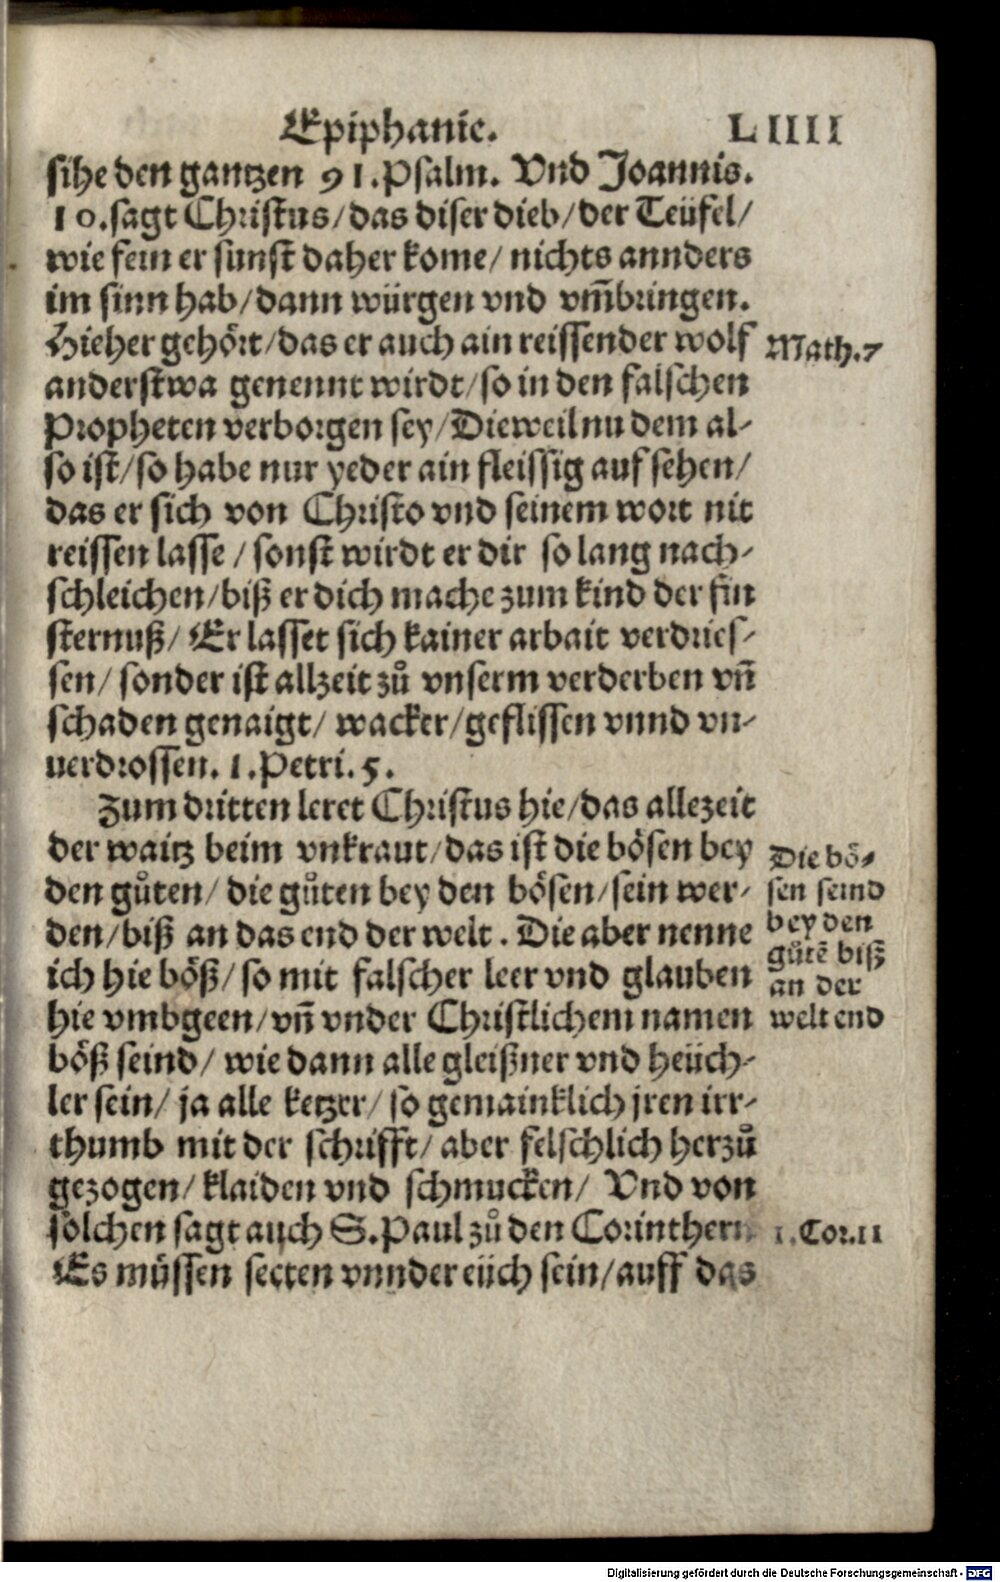 Epiphanie. LIIII
sihe den gantzen 91. Psalm. Vnd Joannis.
10. sagt Christus/ das diser dieb/ der Teüfel/
wie fein er sunst daher kome/ nichts annders
im sinn hab/ dann würgen vnd vm̃bringen.
Hieher gehört/ das er auch ain reissender wolf
Math. 7
anderstwa genennt wirdt/ so in den falschen
Propheten verborgen sey/ Dieweil nu dem al-
so ist/ so habe nur yeder ain fleissig auf sehen/
das er sich von Christo vnd seinem wort nit
reissen lasse/ sonst wirdt er dir so lang nach-
schleichen/ biß er dich mache zum kind der fin
sternuß/ Er lasset sich kainer arbait verdries-
sen/ sonder ist allzeit zů vnserm verderben vñ
schaden genaigt/ wacker/ geflissen vnnd vn-
uerdrossen. 1. Petri. 5.
Zum dritten leret Christus hie/ das allezeit
der waitz beim vnkraut/ das ist die bösen bey
den gůten/ die gůten bey den bösen/ sein wer-
den/ biß an das end der welt. Die aber nenne
ich hie böß/ so mit falscher leer vnd glauben
hie vmbgeen/ vñ vnder Christlichem namen
böß seind/ wie dann alle gleißner vnd heüch-
ler sein/ ja alle ketzer/ so gemainklich jren irr-
thumb mit der schrifft/ aber felschlich herzů
gezogen/ klaiden vnd schmucken/ Vnd von
solchen sagt auch S. Paul zů den Corinthern
Es müssen secten vnnder eüch sein/ auff das
Die bö-
sen seind
bey den
gůtē biß
an der
welt end
1. Cor. 11
Digitalisierung gefördert durch die Deutsche Forschungsgemeinschaft - DFG